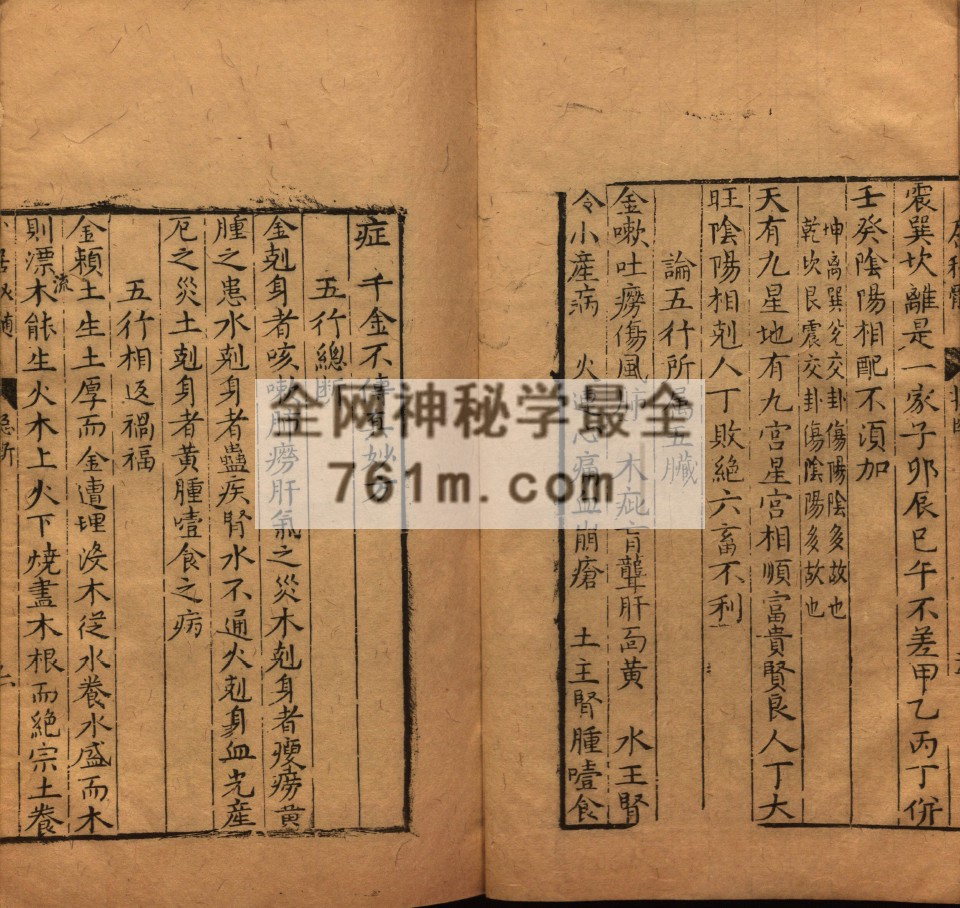 震巽坎離是一家子卯辰巳午不差甲乙丙丁併
壬癸陰陽相配不湏加
坤離巽兌交卦傷陽陰多故也
乾坎艮震交卦傷陰陽多故也
天有九星地有九宮星宮相順富貴賢良人丁大
旺陰陽相剋人丁敗絕六畜不利
論五行所屬五臟
金嗽吐癆傷風 木疵盲聾肝面黃 水王腎
令小產病 火 心痛血崩瘡 土主腎腫噎食
症 千金不傳真妙
五行總斷
金剋身者咳嗽肝癆肝氣之災木剋身者瘦癆黃
腫之患水剋身者蠱疾腎水不通火剋身血光產
厄之災土剋身者黃腫噎食之病
五行相返禍福
金賴土生土厚而金遭埋沒木從水養水盛而木
則漂流木能生火木上火下燒盡木根而絕宗土養
全网神秘学最全
761m.com